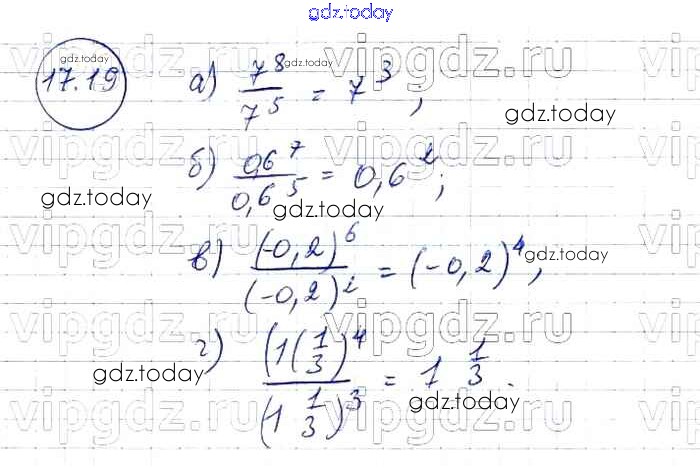 gdz.today
17.19
gdz.today
а) 7^8 / 7^5 = 7^3,
gdz.today
vipgdz.ru
gdz.today
б) 0,6^7 / 0,6^5 = 0,6^2;
gdz.today
gdz.today
vipgdz.ru
в) (-0,2)^6 / (-0,2)^2 = (-0,2)^4,
gdz.today
vipgdz.ru
г) (1(1/3)^4 / (1 1/3)^3 = 1 1/3.
gdz.today
gdz.today
vipgdz.ru